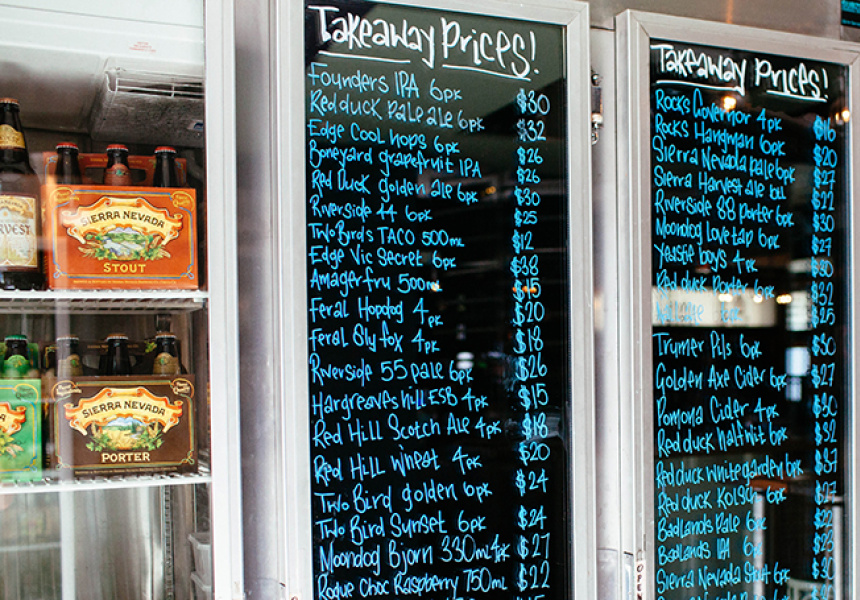 SIERRA NEVADA
STOUT
SIERRA NEVADA
PORTER
Takeaway Prices!
Founders IPA 6pk $30
Red duck pale ale 6pk $32
Edge Cool hops 6pk $26
Boneyard grapefruit IPA $26
Red Duck golden ale 6pk $30
Riverside 44 6pk $25
Two Birds TACO 500mL $12
Edge Vic Secret 6pk $38
Amager fru 500mL
Feral Hopdog 4pk $20
Feral Sly fox 4pk $18
Riverside 55 pale 6pk $26
Hargreaves hill ESB 4pk $15
Red Hill Scotch Ale 4pk $18
Red Hill wheat 4pk $20
Two Bird golden 6pk $24
Two Bird Sunset 6pk $24
Moondog Bjorn 330mL 4pk $27
Rogue Choc Raspberry 750mL $22
Takeaway Prices!
Rocks Governor 4pk $16
Rocks Hangman 6pk $20
Sierra Nevada pale 6pk $27
Sierra Harvest ale
Riverside 88 porter 6pk $30
Moondog Love tap 6pk $27
Yeastie boys 4pk $30
Red duck Porter 6pk $32
$25
Trumer Pils 6pk $30
Golden Axe Cider 6pk $27
Pomona Cider 4pk
Red duck halfwit 6pk $32
Red duck white garden 6pk
Red duck Kolsch 6pk
Badlands Pale 6pk
Badlands IPA
Sierra Nevada Stout 6pk